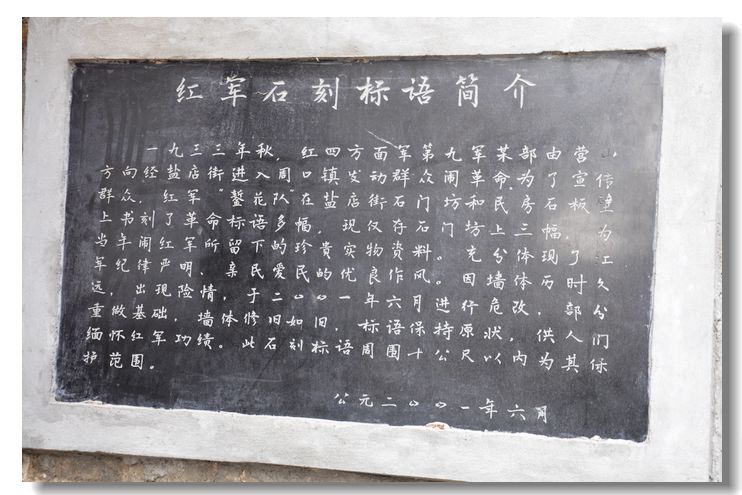 红军石刻标语简介
一九三三年秋，红四方面军第九军某部由营山
方向经盐店街进入周口镇发动群众闹革命，为了宣传
群众，红军“錾花队”在盐店街石门坊和民房石板、壁
上书刻了革命标语多幅，现仅存门坊上三幅，为
当年闹红军所留下的珍贵实物资料。充分体现了红
军纪律严明、亲民爱民的优良作风。因墙体历时久
远，出现险情，于二〇〇一年六月进行危改，部分
重做基础，墙体修旧如旧，标语保持原状，供人们
缅怀红军功绩。此石刻标语周围十公尺以内为其保
护范围。
公元二〇〇一年六月